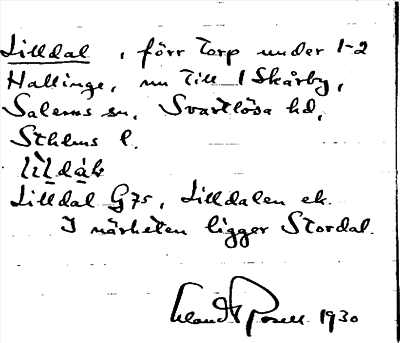 Lilldal, förr torp under 1-2
Hallinge, nu till 1 Skårby,
Salems sn, Svartlösa hd,
Sthlms l.
Lilldal G7s, Lilldalen ek.
I närheten ligger Stordal.
Rosell 1930